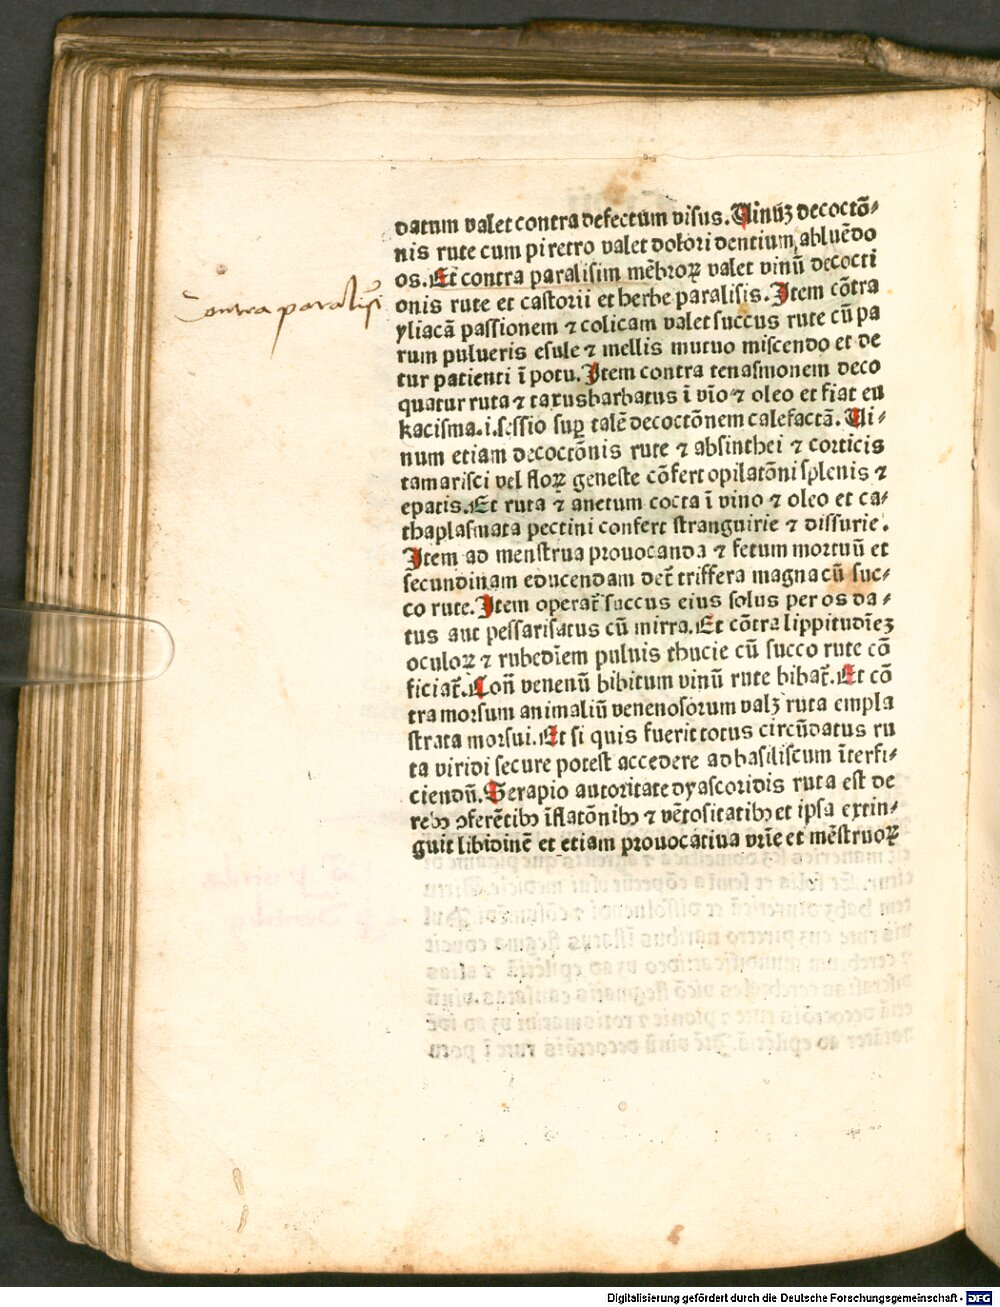 datum valet contra defectum visus. Uinūꝫ decoctō⸗
nis rute cum piretro valet dolori dentium abluēdo
os. Et contra paralisim mēbroꝝ valet vinū decocti
Contra paralisī
onis rute et castorii et herbe paralisis. Item cōtra
yliacā passionem ⁊ colicam valet succus rute cū pa
rum pulueris esule ⁊ mellis mutuo miscendo et de
tur patienti ī potu. Item contra tenasmonem deco
quatur ruta ⁊ taxusbarbatus ī vīo ⁊ oleo et fiat eu
kacisma .i. sessio sup̱ talē decoctōnem calefactā. Ui⸗
num etiam decoctōnis rute ⁊ absinthei ⁊ corticis
tamarisci vel floꝝ geneste cōfert opilatōni splenis ⁊
epatis. Et ruta ⁊ anetum cocta ī vino ⁊ oleo et ca⸗
thaplasmata pectini confert stranguirie ⁊ dissurie.
Item ad menstrua prouocanda ⁊ fetum mortuū et
secundinam educendam det̄ triffera magna cū suc⸗
co rute. Item operat̄ succus eius solus per os da⸗
tus aut pessarisatus cū mirra. Et cōtra lippitudīeꝫ
oculoꝝ ⁊ rubedīem puluis thucie cū succo rute cō
ficiat̄. Con̄ venenū bibitum vinū rute bibat̄. Et cō
tra morsum animaliū venenosorum valꝫ ruta empla
strata morsui. Et si quis fuerit totus circūdatus ru
ta viridi secure potest accedere ad basiliscum īterfi⸗
ciendū. Serapio autoritate dyascoridis ruta est de
rebꝰ ꝯferētibꝰ īflatōnibꝰ ⁊ vētositatibꝰ et ipsa extin⸗
guit libidinē et etiam prouocatiua vrīe et mēstruoꝝ
Digitalisierung gefördert durch die Deutsche Forschungsgemeinschaft - DFG